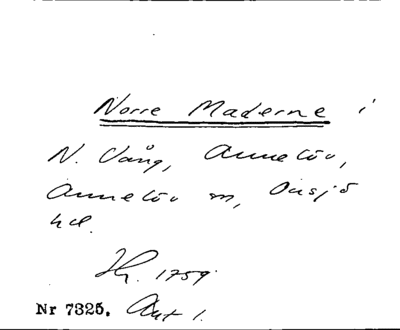 Norre Maderne i
N. Vång, Annelöv,
Annelöv sn, Onsjö
hd.
Hy. 1759.
Nr 7325. Akt 1.